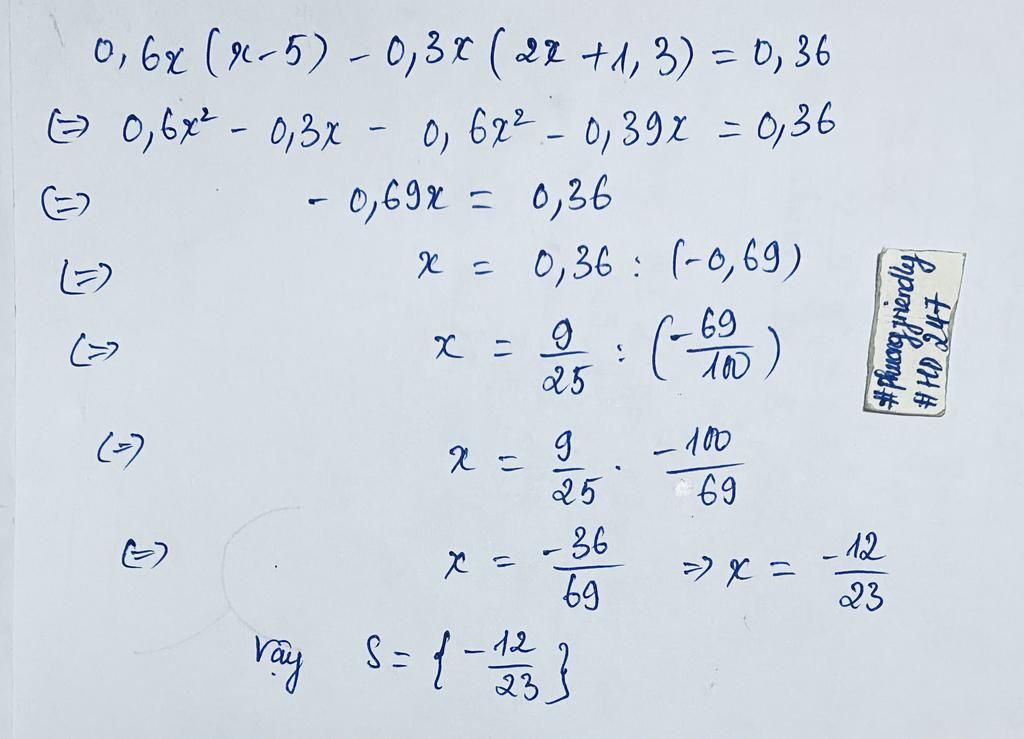 0,6x (x-5) - 0,3x (2x +1,3) = 0,36
(=) 0,6x² - 0,3x - 0,6x² - 0,39x = 0,36
(=) - 0,69x = 0,36
(=) x = 0,36 : (-0,69)
(=) x = 9/25 : (-69/100)
(=) x = 9/25 . -100/69
(=) x = -36/69 => x = -12/23
Vậy S = {-12/23}
#phuongfriendly
#HD 247